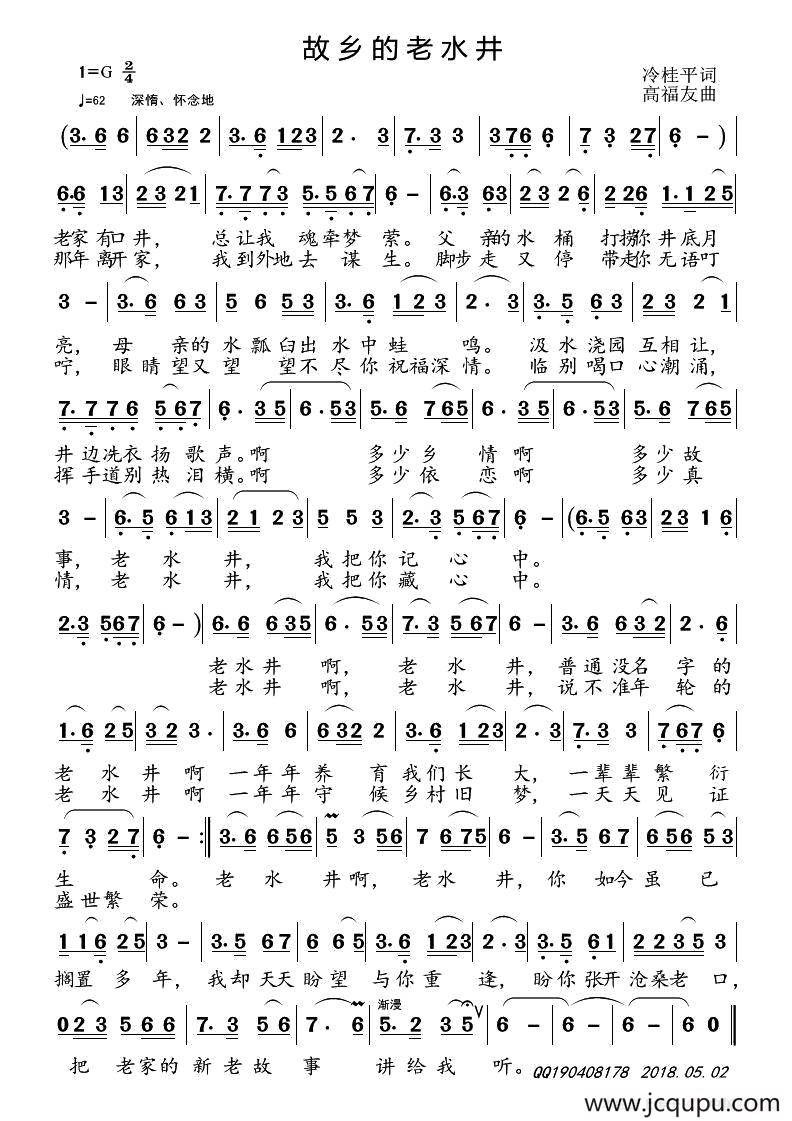 故乡的老水井
1=G 2/4
冷桂平词
♩=62 深情、怀念地
高福友曲
(3. 6 6 | 6 3 2 2 | 3. 6 1 2 3 | 2 . 3 | 7. 3 3 | 3 7 6 6 | 7 3 2 7 | 6 - )
6. 6 1 3 | 2 3 2 1 | 7. 7 7 3 5. 5 6 7 | 6 - | 6. 3 6 3 | 2 3 2 6 | 2 2 6 1. 1 2 5
老家有口井， 总让我 魂牵梦 萦。 父 亲的 水 桶 打捞你 井底月
那年离开家， 我到外地 去 谋 生。 脚步 走 又 停 带走你 无语叮
3 - | 3. 6 6 3 | 5 6 5 3 | 3. 6 1 2 3 | 2 . 3 | 3. 5 6 3 | 2 3 2 1
亮， 母 亲的 水 瓢舀出 水 中 蛙 鸣。 汲 水 浇园 互 相 让，
咛， 眼 睛 望 又 望 望 不 尽 你 祝福 深 情。 临 别 喝口 心 潮 涌，
7. 7 7 6 5 6 7 | 6 . 3 5 | 6 . 5 3 | 5. 6 7 6 5 | 6 . 3 5 | 6 . 5 3 | 5. 6 7 6 5
井 边 洗衣 扬 歌 声。啊 多 少 乡 情 啊 多 少 故
挥 手 道 别 热 泪 横。啊 多 少 依 恋 啊 多 少 真
3 - | 6. 5 6 1 3 | 2 1 2 3 | 5 5 3 | 2. 3 5 6 7 | 6 - | (6. 5 6 3 | 2 3 1 6
事， 老 水 井， 我 把 你 记 心 中。
情， 老 水 井， 我 把 你 藏 心 中。
2. 3 5 6 7 | 6 - ) | 6. 6 6 3 5 | 6 . 5 3 | 7. 3 5 6 7 | 6 - | 3. 6 6 3 2 | 2. 6
老 水 井 啊， 老 水 井， 普 通 没 名 字 的
老 水 井 啊， 老 水 井， 说 不 准 年 轮 的
1. 6 2 5 | 3 2 3 . | 3. 6 6 | 6 3 2 2 | 3. 6 1 2 3 | 2 . 3 | 7. 3 3 | 7 6 7 6
老 水 井 啊 一 年 年 养 育 我 们 长 大， 一 辈 辈 繁 衍
老 水 井 啊 一 年 年 守 候 乡 村 旧 梦， 一 天 天 见 证
7 3 2 7 | 6 - :| 3. 6 6 5 6 | 5 3 5 6 | 7 6 7 5 | 6 - | 3. 5 6 7 | 6 5 6 5 3
生 命。 老 水 井 啊， 老 水 井， 你 如 今 虽 已
盛 世 繁 荣。
1 1 6 2 5 | 3 - | 3. 5 6 7 | 6 6 5 | 3. 6 1 2 3 | 2 . 3 | 3. 5 6 1 | 2 2 3 5 3
搁置 多 年， 我 却 天天 盼 望 与 你 重 逢， 盼 你 张开 沧桑 老 口，
渐慢
0 2 3 5 6 6 | 7. 3 5 6 | 7 . 6 | 5. 2 3 5 | 6 - | 6 - | 6 - | 6 0
把 老 家 的 新 老 故 事 讲 给 我 听。
QQ190408178 2018.05.02
www.jcqupu.com